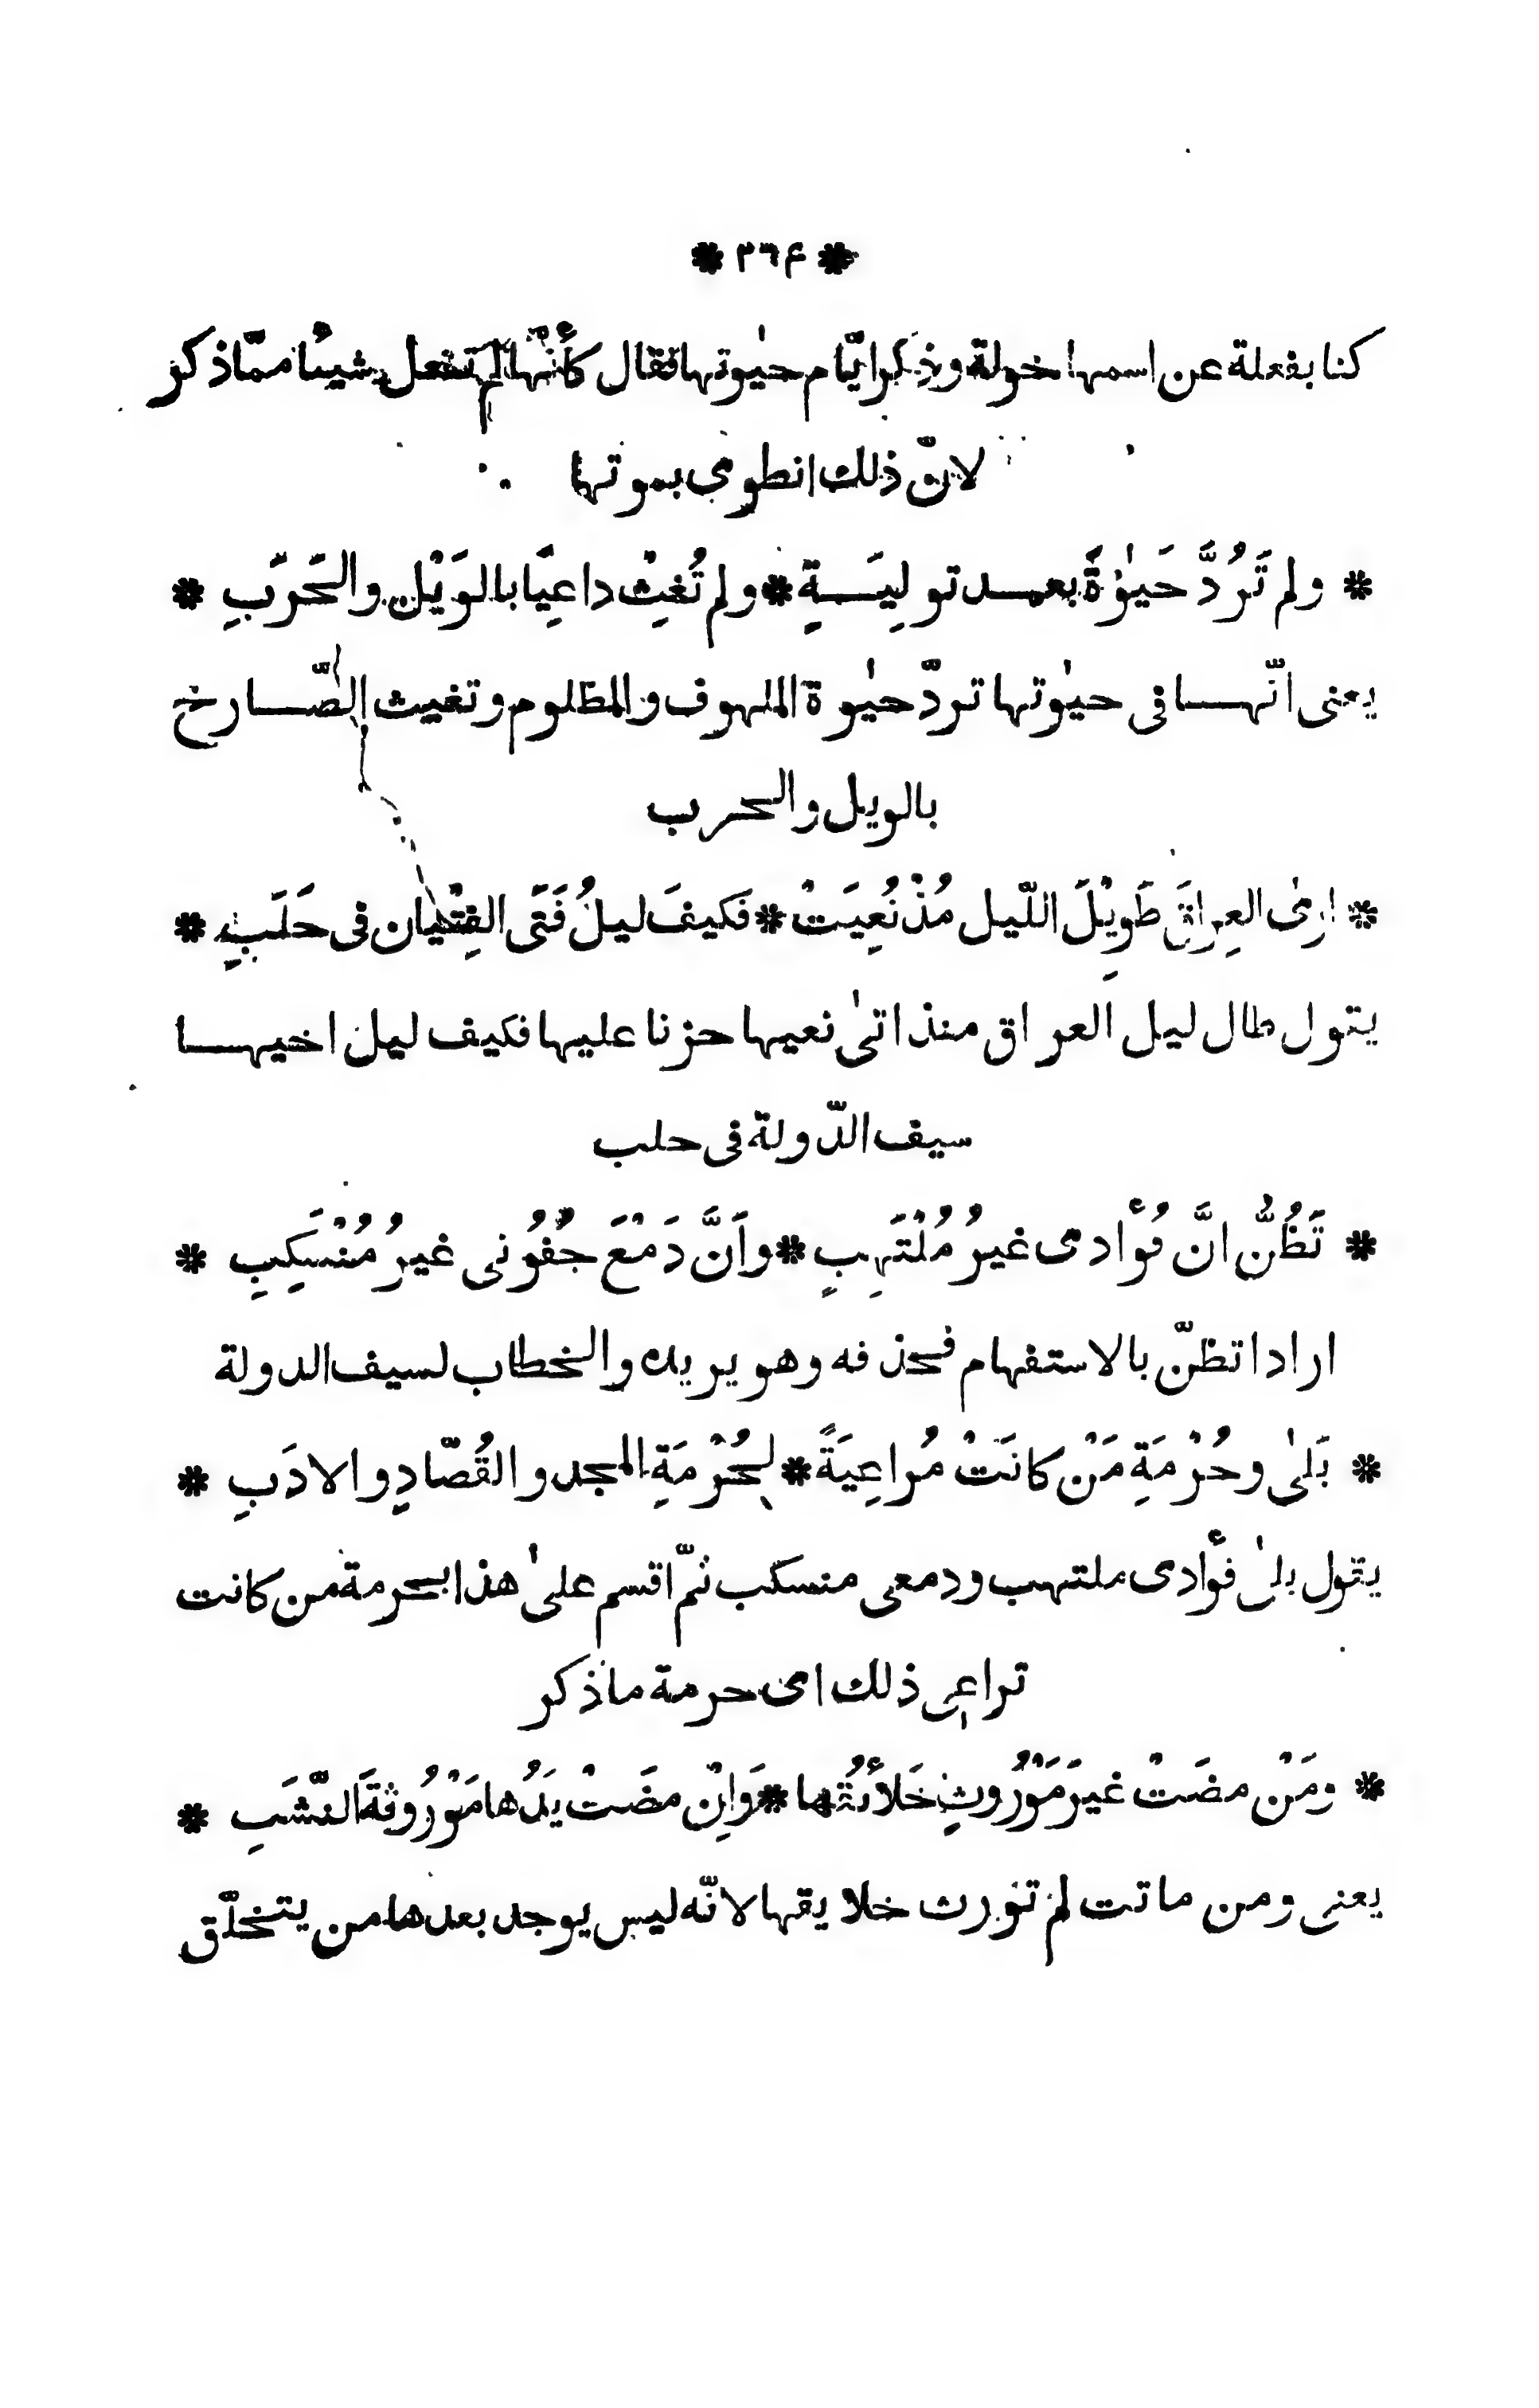 * ٣٦۴ *
كنا بفعلة عن اسمها خولة وذكر ايّام حيٰوتها فقال كأنّها لم تفعل شيئا ممّا ذكر
لانّ ذلك انطوى بموتها
* ولم تَرُدَّ حَيٰوةً بعـد تولِيَـةٍ * ولم تُغِثْ داعيًا بالوَيْل والحَرَبِ *
يعنى انّهـا فى حيٰوتها تردّ حيٰوة الملهوف والمظلوم وتغيث الصّـارخ
بالويل والحرب
* ارى العِراقَ طَوِيْلَ اللّيل مُذْ نُعِيَتْ * فكيفَ ليلُ فَتَى الفِتْيان فى حَلَبِ *
يقول طال ليل العراق منذ اتىٰ نعيها حزنا عليها فكيف ليل اخيهـا
سيف الدّولة فى حلب
* تَظُنُّ انَّ فُوأدى غيرُ مُلْتَهِبٍ * واَنَّ دَمْعَ جُفُونى غيرُ مُنْسَكِبِ *
اراد اتظنّ بالاستفهام فحذفه وهو يريده والخطاب لسيف الدولة
* بَلىٰ وحُرْمَةِ مَنْ كانَتْ مُراعِيَةً * لِحُرْمَةِ المجد والقُصّادِ والادَبِ *
يقول بلىٰ فوأدى ملتهب ودمعى منسكب ثمّ اقسم علىٰ هذا بحرمة من كانت
تراعى ذلك اى حرمة ما ذكر
* ومَنْ مضَتْ غيرَ مَوْرُوثٍ خَلائقُها * وَاِنْ مضَتْ يَدُها مَوْرُوثةَ النّشَبِ *
يعنى ومن ماتت لم تورث خلايقها لانّه ليس يوجد بعدها من يتخلّق